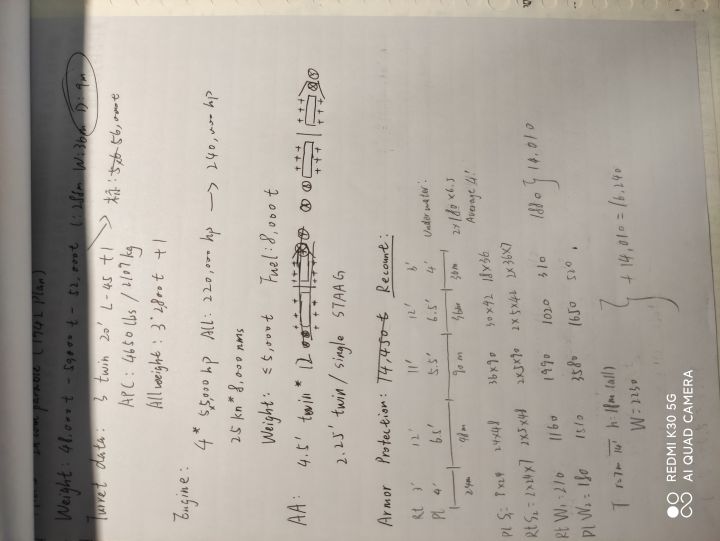 (1942 Plan)
Weight: 48,000t - 59000t - 52,000t L: 288m W: 36m D: 9m
Turret data: 3 twin 20' L-45 +1 56,000t
APC: 4650 lbs / 2109kg
All weight: 3*2800t +1
Engine:
4 * 55,000 hp All: 220,000 hp → 240,000 hp
25 kn * 8,000 nms
Weight: ≤ 5,000t Fuel: 8,000t
AA: 4.5' twin * 12
2.25' twin / single STAAG
Armor Protection: 14,450t Recount:
Rt 3' 12' 11' 12' 3' Underwater:
Pl 4' 6.5' 5.5' 6.5' 4' 2×180×6.5
24m 48m 90m 36m Average 4'
Pl S1: 24×48 36×90 30×42 18×36
Rt S2= 2×24×7 2×5×48 2×5×90 2×5×42 2×36×7
Rt W1: 210 1160 1990 1020 310 1880 } 14,010
Pl W2= 180 1510 3580 1650 520
T h: 18m (all) } + 14,010 = 16,240
W: 2230
REDMI K30 5G
AI QUAD CAMERA